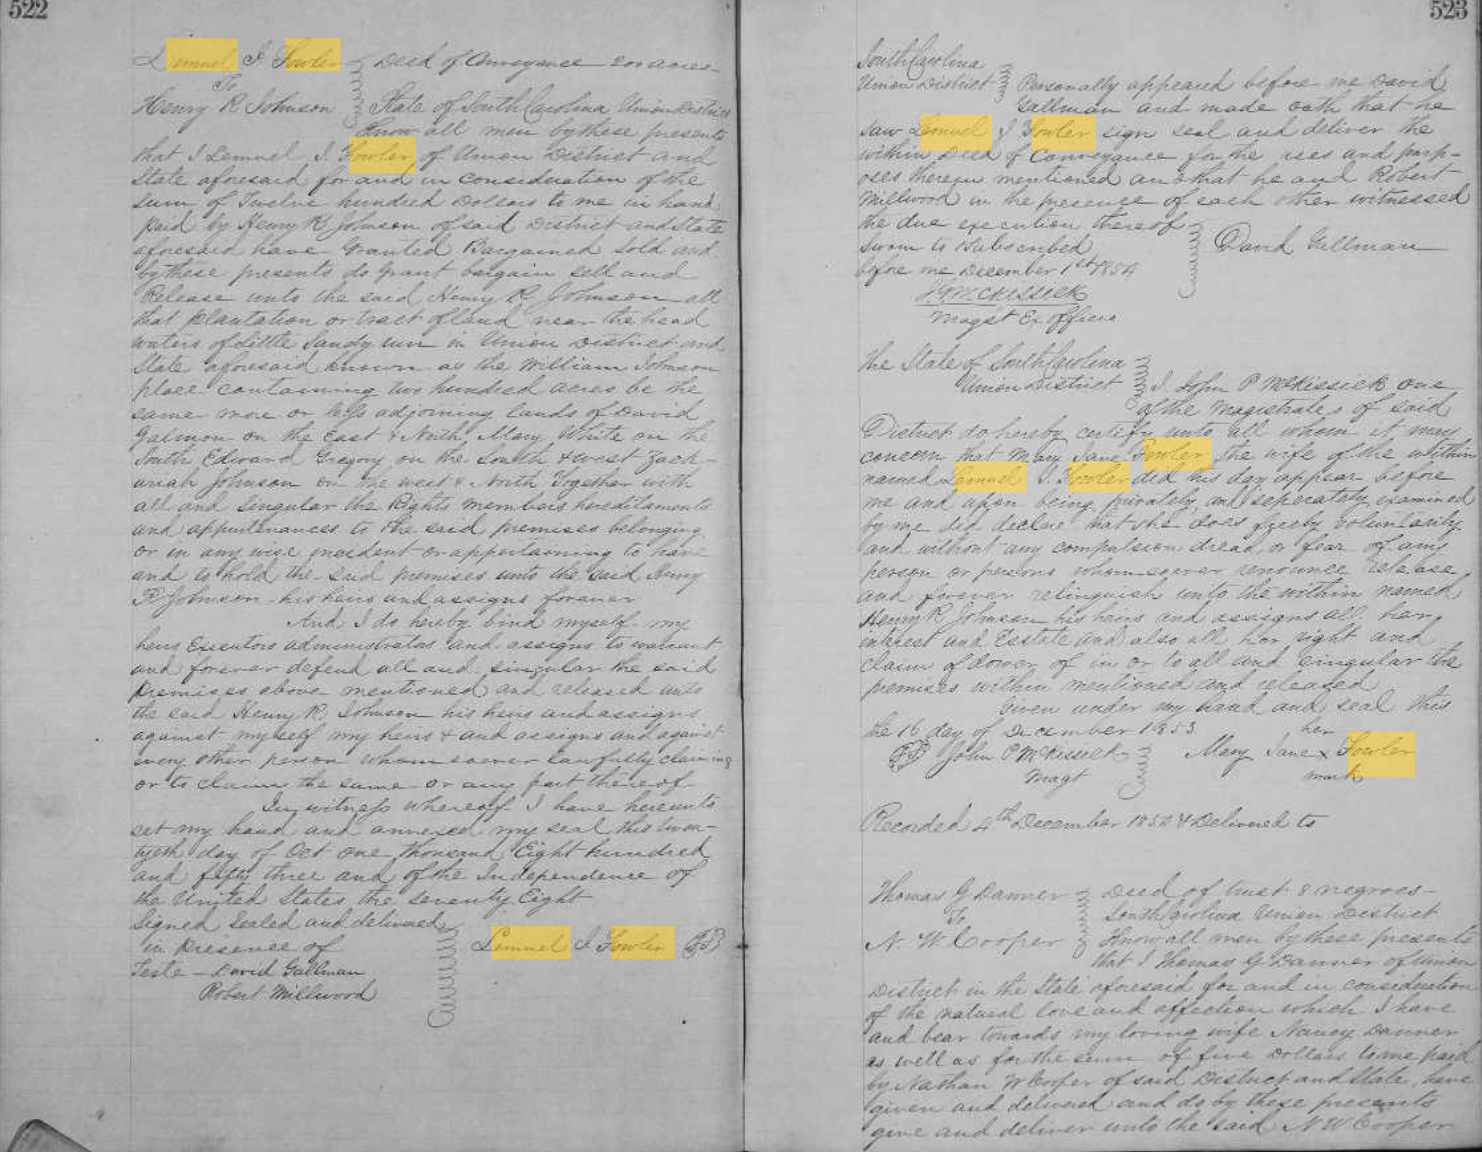 522
Lemuel I Fowler Deed of Conveyance 200 acres
To
Henry R Johnson State of South Carolina Union District
Know all men by these presents
that I Lemuel I. Fowler, of Union District and
State aforesaid for and in consideration of the
sum of Twelve hundred Dollars to me in hand
paid by Henry R Johnson of said District and State
aforesaid have Granted Bargained Sold and
by these presents do grant bargain sell and
Release unto the said Henry R. Johnson all
that plantation or tract of land near the head
waters of Little Sandy run in Union District and
State aforesaid known as the William Johnson
place containing two hundred acres be the
same more or less adjoining lands of David
Galmon on the East & North, Mary White on the
South Edward Gregory on the South & west Zach-
uriah Johnson on the west & North Together with
all and singular the Rights members hereditaments
and appurtenances to the said premises belonging
or in any wise incident or appertaining to have
and to hold the said premises unto the said Henry
R Johnson his heirs and assigns forever
And I do hereby bind myself my
heirs Executors administrators and assigns to warrant
and forever defend all and singular the said
premises above mentioned and released unto
the said Henry R. Johnson his heirs and assigns
against myself my heirs & and assigns and against
every other person whomsoever lawfully claiming
or to claim the same or any part thereof
In witness whereof I have hereunto
set my hand and annexed my seal this twen-
tyeth day of Oct one thousand Eight hundred
and fifty three and of the Independence of
the United States the seventy Eight
Signed Sealed and delivered
in presence of Lemuel I Fowler
Teste - David Gallman
Robert Millwood
523
South Carolina
Union District Personally appeared before me David
Gallman and made oath that he
saw Lemuel I Fowler sign seal and deliver the
within Deed of Conveyance for the uses and purp-
oses therein mentioned and that he and Robert
Millwood in the presence of each other witnessed
the due execution thereof
Sworn to & Subscribed David Gallman
before me December 1st 1854
McKissick
Magst Ex officio
the State of South Carolina
Union District I, John P McKissick one
of the Magistrates of said
District do hereby certify unto all whom it may
concern that Mary Jane Fowler the wife of the within
named Lemuel I. Fowler did this day appear before
me and upon being privately and seperately examined
by me did declare that she does freely voluntarily
and without any compulsion dread or fear of any
person or persons whomsoever renounce release
and forever relinquish unto the within named
Henry R Johnson his heirs and assigns all her
interest and Estate and also all her right and
claim of dower of in or to all and singular the
premises within mentioned and released
Given under my hand and seal this
the 16 day of December 1853 her
John P McKissick Mary Jane x Fowler
Magt mark
Recorded 4th December 1854 & Delivered to
Thomas G Danner Deed of trust 8 negroes
To South Carolina Union District
N. W. Cooper Know all men by these presents
that I Thomas G Danner of Union
District in the State aforesaid for and in consideration
of the natural love and affection which I have
and bear towards my loving wife Nancy Danner
as well as for the sum of five Dollars to me paid
by Nathan W Cooper of said District and State, have
given and delivered and do by these presents
give and deliver unto the said N W Cooper